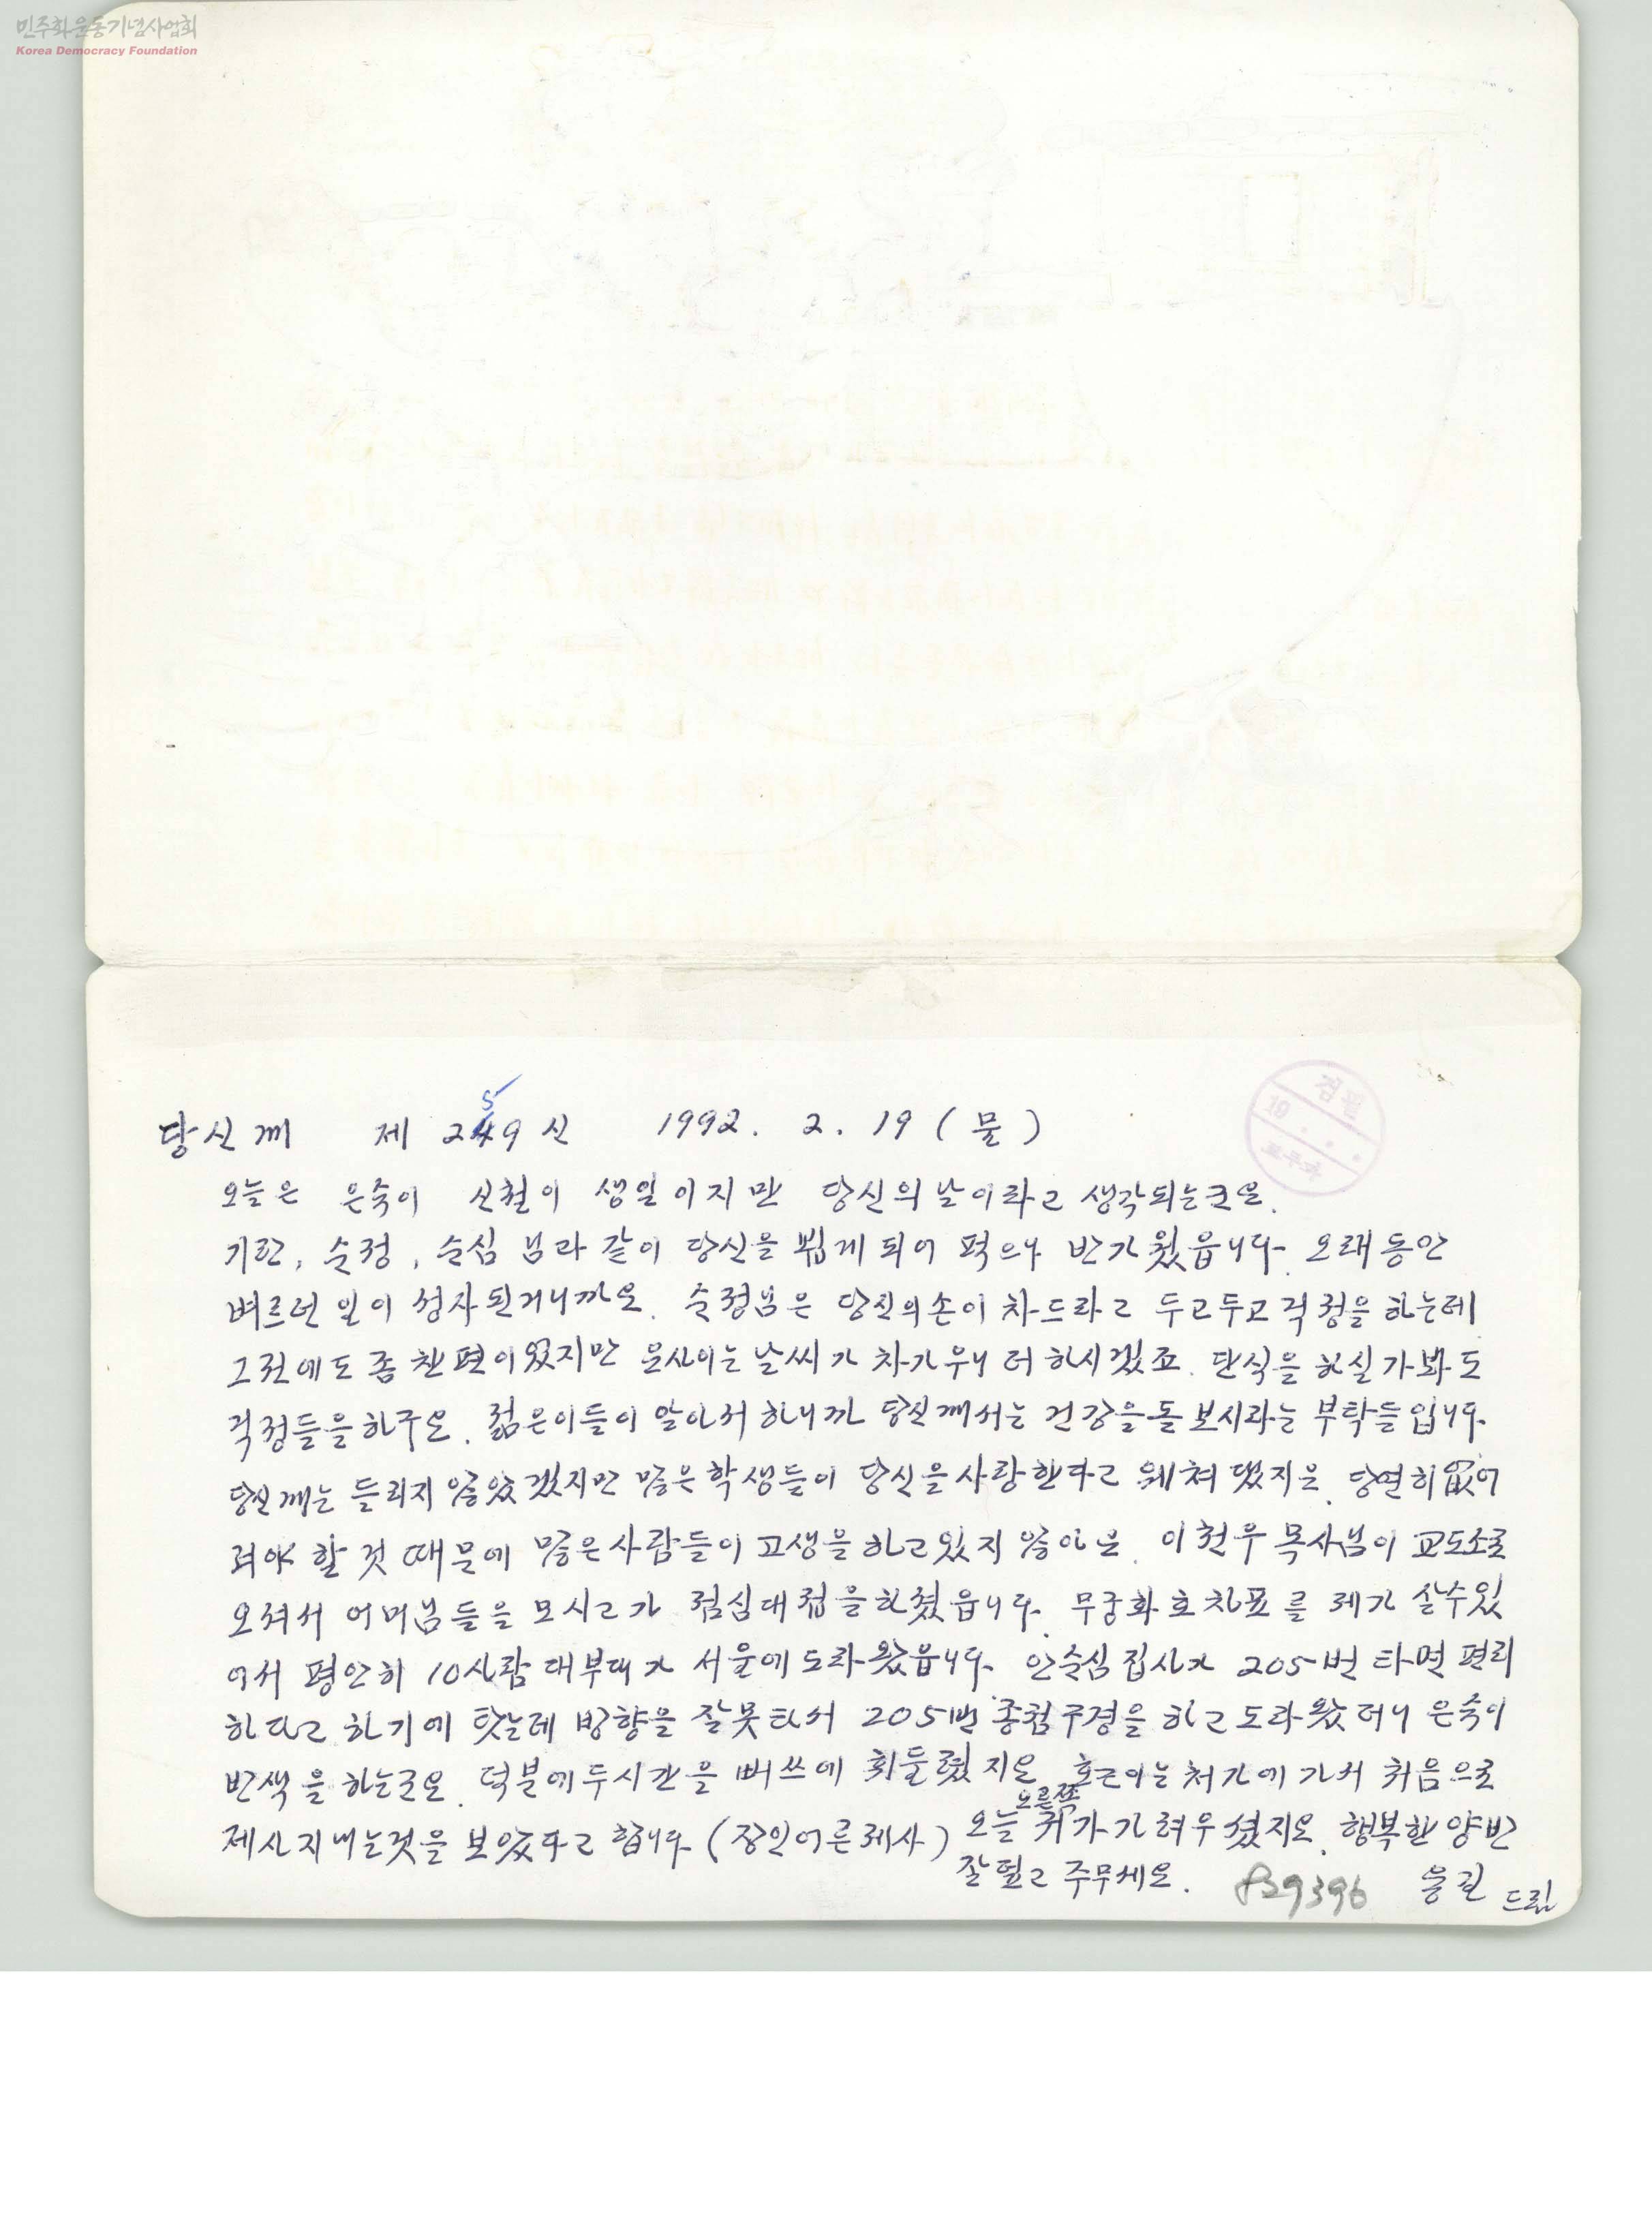 민주화운동기념사업회
Korea Democracy Foundation
당신께 제 259신 1992. 2. 19 (물)
검필
19 . .
교무과
오늘은 은숙이 신철이 생일이지만 당신의 날이라고 생각되는군요.
기란, 순정, 순심 님과 같이 당신을 뵙게 되어 퍽으나 반가웠읍니다. 오래동안
벼르던 일이 성사된거니까요. 순정님은 당신의 손이 차드라고 두고두고 걱정을 하는데
그전에도 좀 찬편이었지만 문사이는 날씨가 차가우니 더 하시겠죠. 단식을 하실가봐도
걱정들을 하구요. 젊은이들이 알아서 하니까 당신께서는 건강을 돌보시라는 부탁들입니다.
당신께는 들리지 않았겠지만 많은 학생들이 당신을 사랑한다고 웨쳐댔지요. 당연히 없어
져야 할 것 때문에 많은 사람들이 고생을 하고 있지 않아요. 이천우 목사님이 교도소로
오셔서 어머님들을 모시고가 점심대접을 하셨읍니다. 무궁화호 차표를 제가 살수있
어서 평안히 10사람 대부대가 서울에 도라왔읍니다. 안순심 집사가 205번 타면 편리
하다고 하기에 탓는데 방향을 잘못타서 205번 종점구경을 하고 도라왔더니 은숙이
반색을 하는군요. 덕분에 두시간을 뻐쓰에 휘둘렸지요. 호근이는 처가에 가서 처음으로
제사 지내는것을 보았다고 합니다. (장인어른 제사) 오늘 오른쪽 귀가 가려우셨지요. 행복한 양반
잘 털고 주무세요. 용길 드림